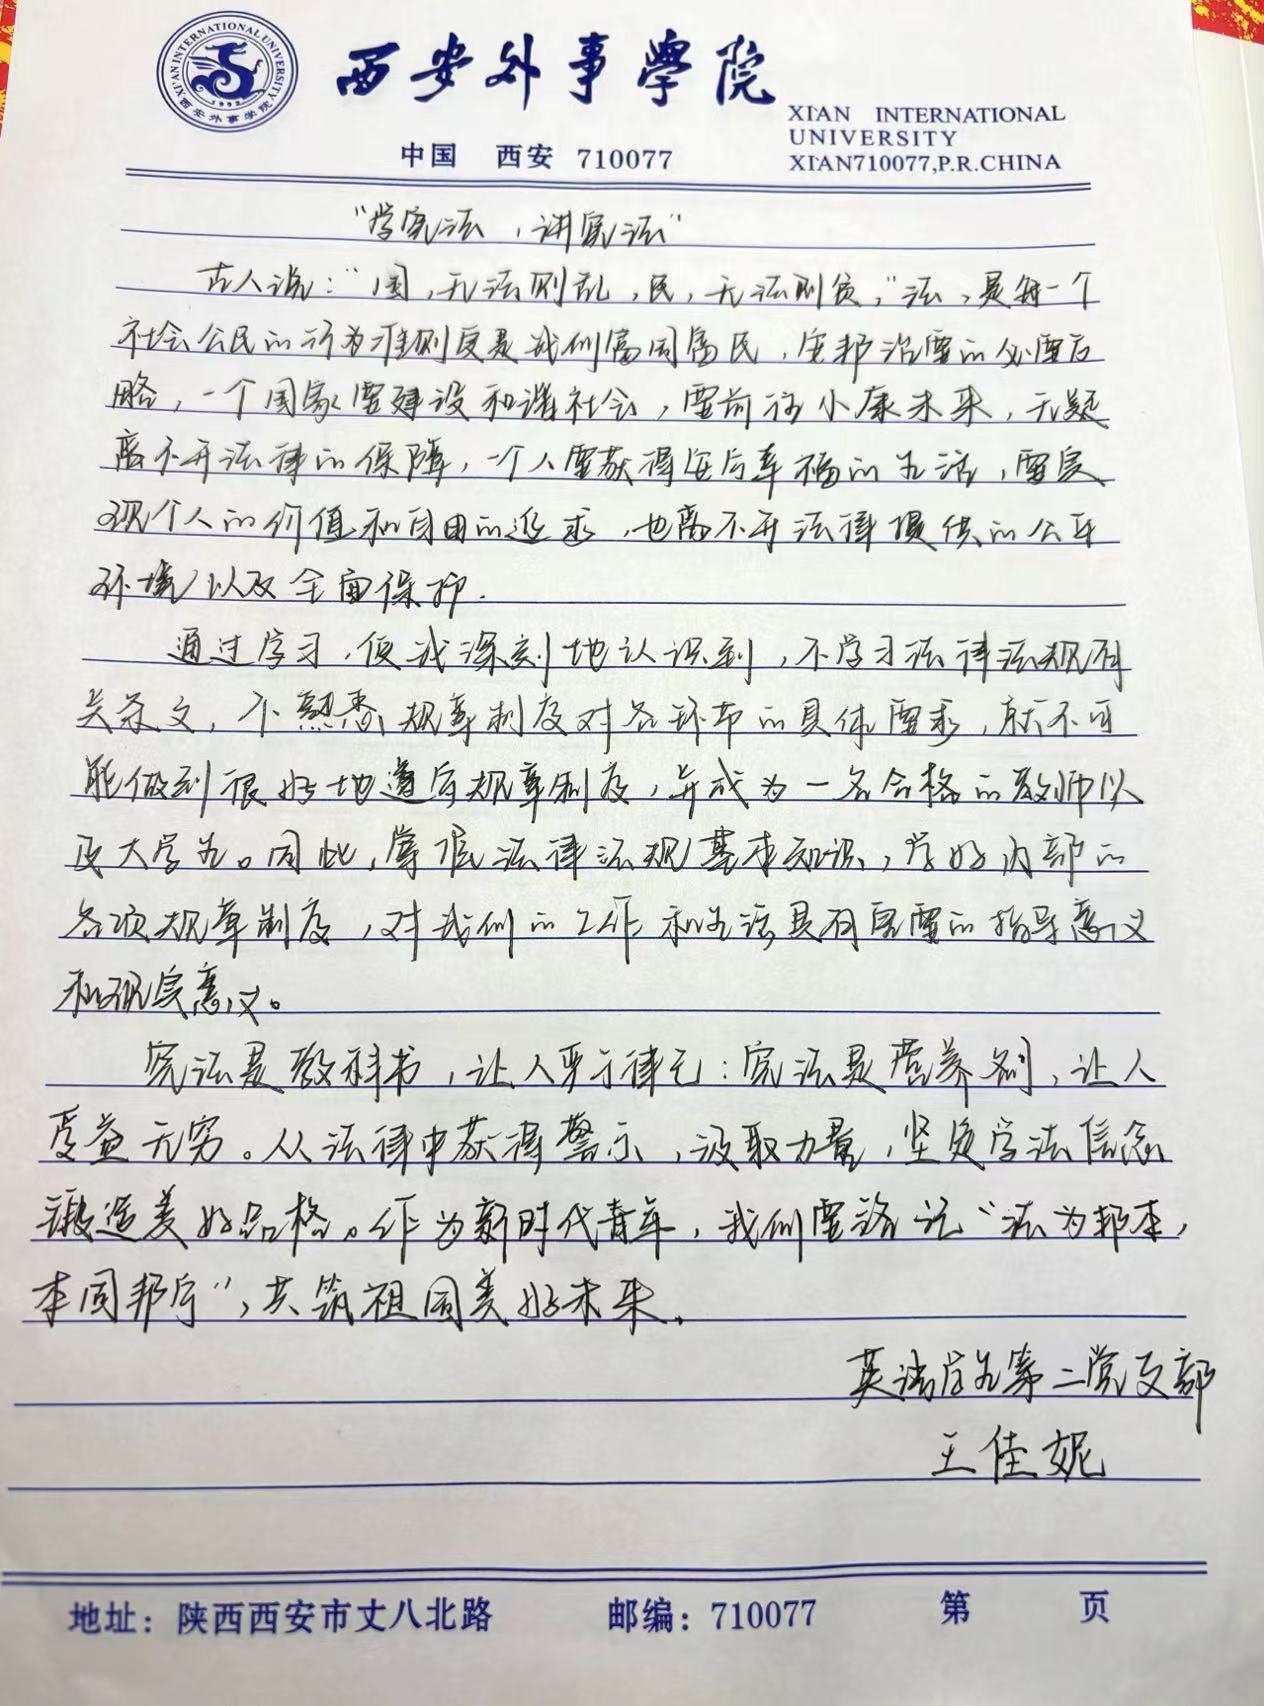 XI'AN INTERNATIONAL UNIVERSITY
1992
西安外事学院
西安外事學院
XI'AN INTERNATIONAL
UNIVERSITY
XI'AN710077,P.R.CHINA
中国 西安 710077
“学宪法,讲宪法”
古人说:“国,无法则乱,民,无法则贫,”法,是每一个
社会公民的行为准则更是我们富国富民,安邦治国的必要方
略,一个国家要建设和谐社会,要前往小康未来,无疑
离不开法律的保障,一个人要获得安宁幸福的生活,要实
现个人的价值和自由的追求,也离不开法律提供的公平
环境以及全面保护.
通过学习,使我深刻地认识到,不学习法律法规有
关条文,不熟悉规章制度对各环节的具体要求,就不可
能做到很好地遵守规章制度,并成为一名合格的教师以
及大学生。因此,掌握法律法规基本知识,学好内部的
各项规章制度,对我们的工作和生活具有重要的指导意义
和现实意义。
宪法是教科书,让人严于律己:宪法是营养剂,让人
受益无穷。从法律中获得警示,汲取力量,坚定学法信念
锻造美好品格。作为新时代青年,我们要铭记“法为邦本,
本固邦宁”,共筑祖国美好未来.
英语学生第二党支部
王佳妮
地址:陕西西安市丈八北路 邮编:710077 第 页